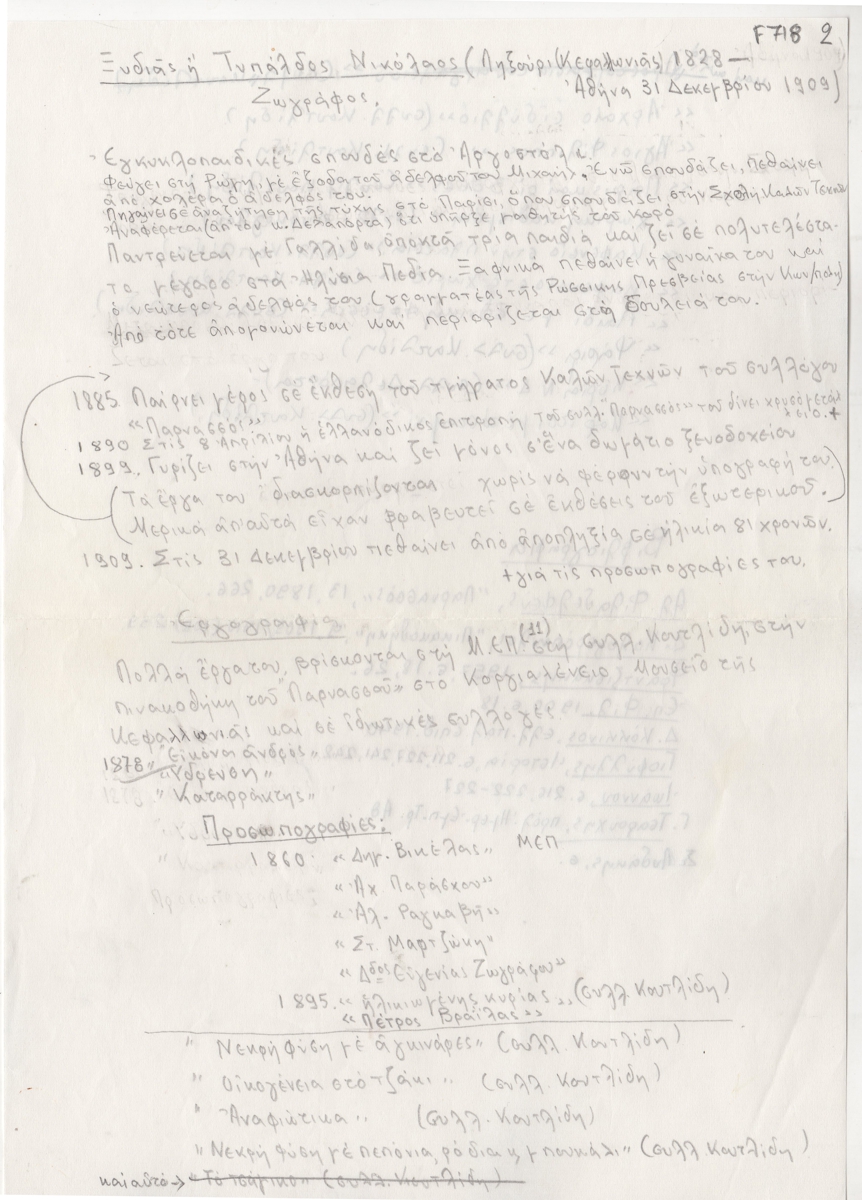 F 718 2
Ξυδιᾶς ἤ Τυπάλδος Νικόλαος (Ληξούρι (Κεφαλλωνιᾶς) 1828 —
Ζωγράφος. Ἀθήνα 31 Δεκεμβρίου 1909)
Ἐγκυκλοπαιδικές σπουδές στό Ἀργοστόλι.
Φεύγει στή Ρώμη, μέ ἔξοδα τοῦ ἀδελφοῦ του Μιχαήλ. Ἐνῶ σπουδάζει, πεθαίνει
ἀπό χολέρα ὁ ἀδελφός του.
Πηγαίνει σέ ἀναζήτηση τῆς τύχης στό Παρίσι, ὅπου σπουδάζει στήν Σχολή Καλῶν Τεχνῶν
Ἀναφέρεται (ἀπ τόν κ. Δελαπόρτα) ὅτι ὑπῆρξε μαθητής τοῦ Κορό
Παντρεύεται μέ Γαλλίδα, ἀποκτᾶ τρία παιδιά καί ζεῖ σέ πολυτελέστα-
το μέγαρο στά Ἠλύσια Πεδία. Ξαφνικά πεθαίνει ἡ γυναίκα του καί
ὁ νεώτερος ἀδελφός του (γραμματέας τῆς Ρωσσικῆς Πρεσβείας στήν Κων/πολη)
Ἀπό τότε ἀπομονώνεται καί περιορίζεται στή δουλειά του.
1885. Παίρνει μέρος σέ ἔκθεση τοῦ τμήματος Καλῶν Τεχνῶν τοῦ συλλόγου
"Παρνασσοῦ"
1890 Στίς 8 Ἀπριλίου ἡ ἑλλανόδικος ἐπιτροπή τοῦ συλλ. "Παρνασσός" τοῦ δίνει χρυσό μετάλ
λειο. +
1899. Γυρίζει στήν Ἀθήνα καί ζεῖ μόνος σ'ἕνα δωμάτιο ξενοδοχείου
(Τά ἔργα του διασκορπίζονται χωρίς νά φέρουν τήν ὑπογραφή του.
Μερικά ἀπ'αὐτά εἶχαν βραβευτεῖ σέ ἐκθέσεις τοῦ ἐξωτερικοῦ.)
1909. Στίς 31 Δεκεμβρίου πεθαίνει ἀπό ἀποπληξία σέ ἡλικία 81 χρονῶν.
+ γιά τίς προσωπογραφίες του.
Ἐργογραφία
Πολλά ἔργα του, βρίσκονται στή Μ.ΕΠ (11) στή συλλ. Κουτλίδη, στήν
πινακοθήκη τοῦ "Παρνασσοῦ" στό Κοργιαλένειο Μουσεῖο τῆς
Κεφαλλωνιᾶς καί σέ ἰδιωτικές συλλογές.
1878 "Εἰκόνα ἀνδρός"
"Ὕδρευση"
"Καταρράκτης"
Προσωπογραφίες:
1860: "Δημ. Βικέλας" ΜΕΠ
"Ἀχ. Παράσχου"
"Ἀλ. Ραγκαβῆ"
"Στ. Μαρτζώκη"
"Δδος Εὐγενίας Ζωγράφου"
1895. "ἡλικιωμένης κυρίας" (συλλ. Κουτλίδη)
"Πέτρος Βράιλας"
"Νεκρή φύση μέ ἀγκινάρες" (συλλ. Κουτλίδη)
"Οἰκογένεια στό τζάκι" (συλλ. Κουτλίδη)
"Ἀναφιώτικα" (συλλ. Κουτλίδη)
"Νεκρή φύση μέ πεπόνια, ρόδια κ μπουκάλι" (συλλ Κουτλίδη)
καί αὐτό → "Τό τσάμικο" (συλλ. Κουτλίδη)